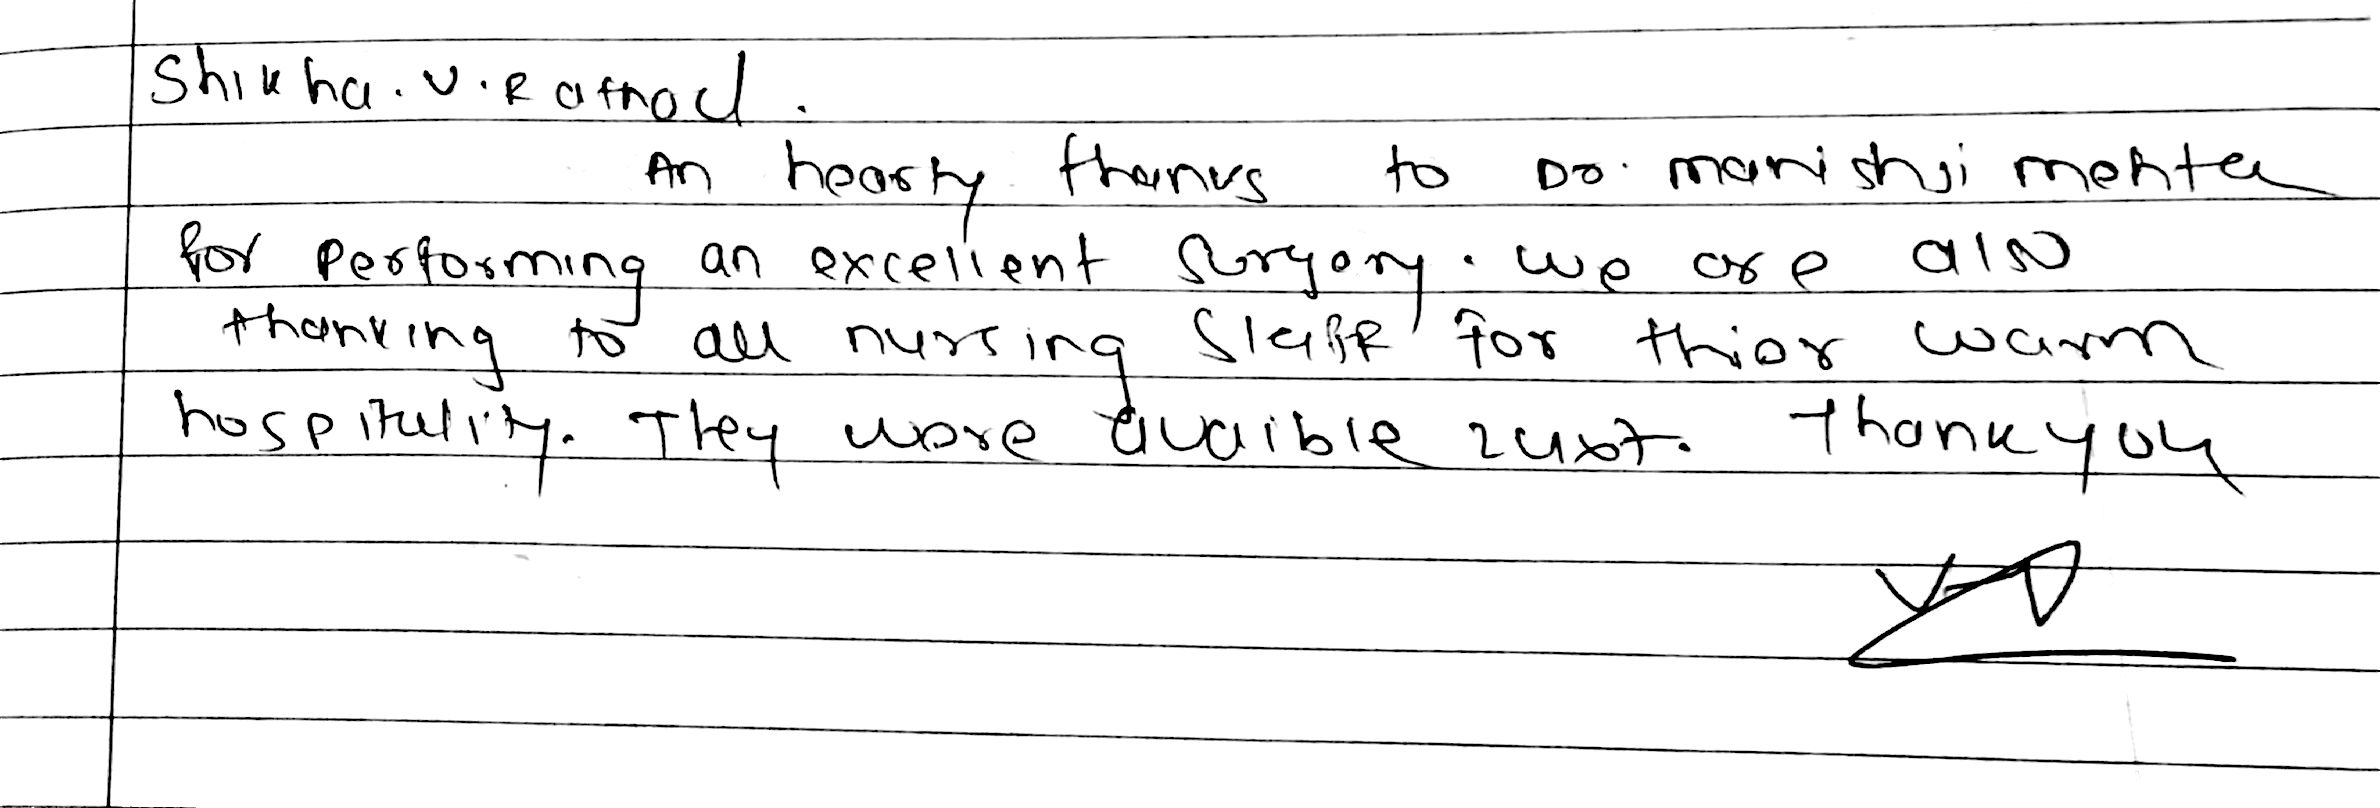 Shikha. V. Rathod.
An hearty thanks to Dr. manishji mehta
for performing an excellent surgery. we are also
thanking to all nursing staff for thior warm
hospitality. They were avaible 24x7. Thank you